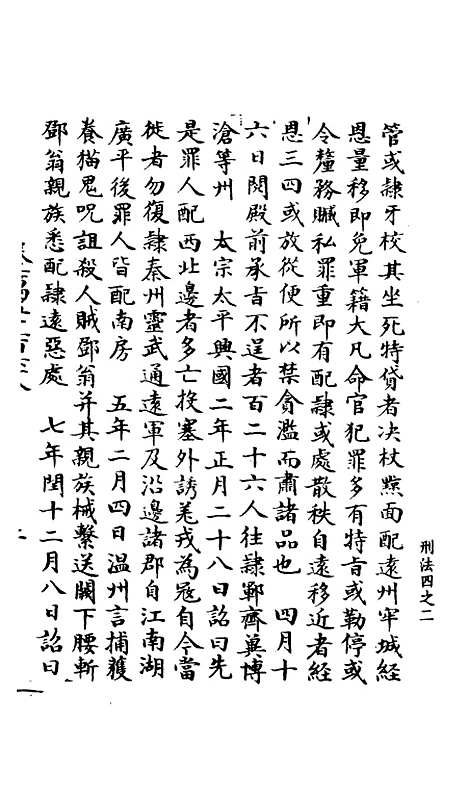 刑法四之二
管或隸牙校其坐死特貸者決杖黥面配遠州牢城經
恩量移即免軍籍大凡命官犯罪多有特㫖或勒停或
令釐務贓私罪重即有配隸或處散秩自遠移近者經
恩三四或放從便所以禁貪濫而肅諸品也　四月十
六日閱殿前承㫖不逞者百二十六人往隸鄆齊冀博
滄等州　太宗太平興國二年正月二十八日詔曰先
是罪人配西北邊者多亡投塞外誘羗戎為冦自今當
徙者勿復隸秦州靈武通遠軍及沿邊諸郡自江南湖
廣平後罪人皆配南方　五年二月四日溫州言捕獲
養猫鬼呪詛殺人賊鄧翁并其親族械繫送闕下腰斬
鄧翁親族悉配隸遠惡處　七年閏十二月八日詔曰